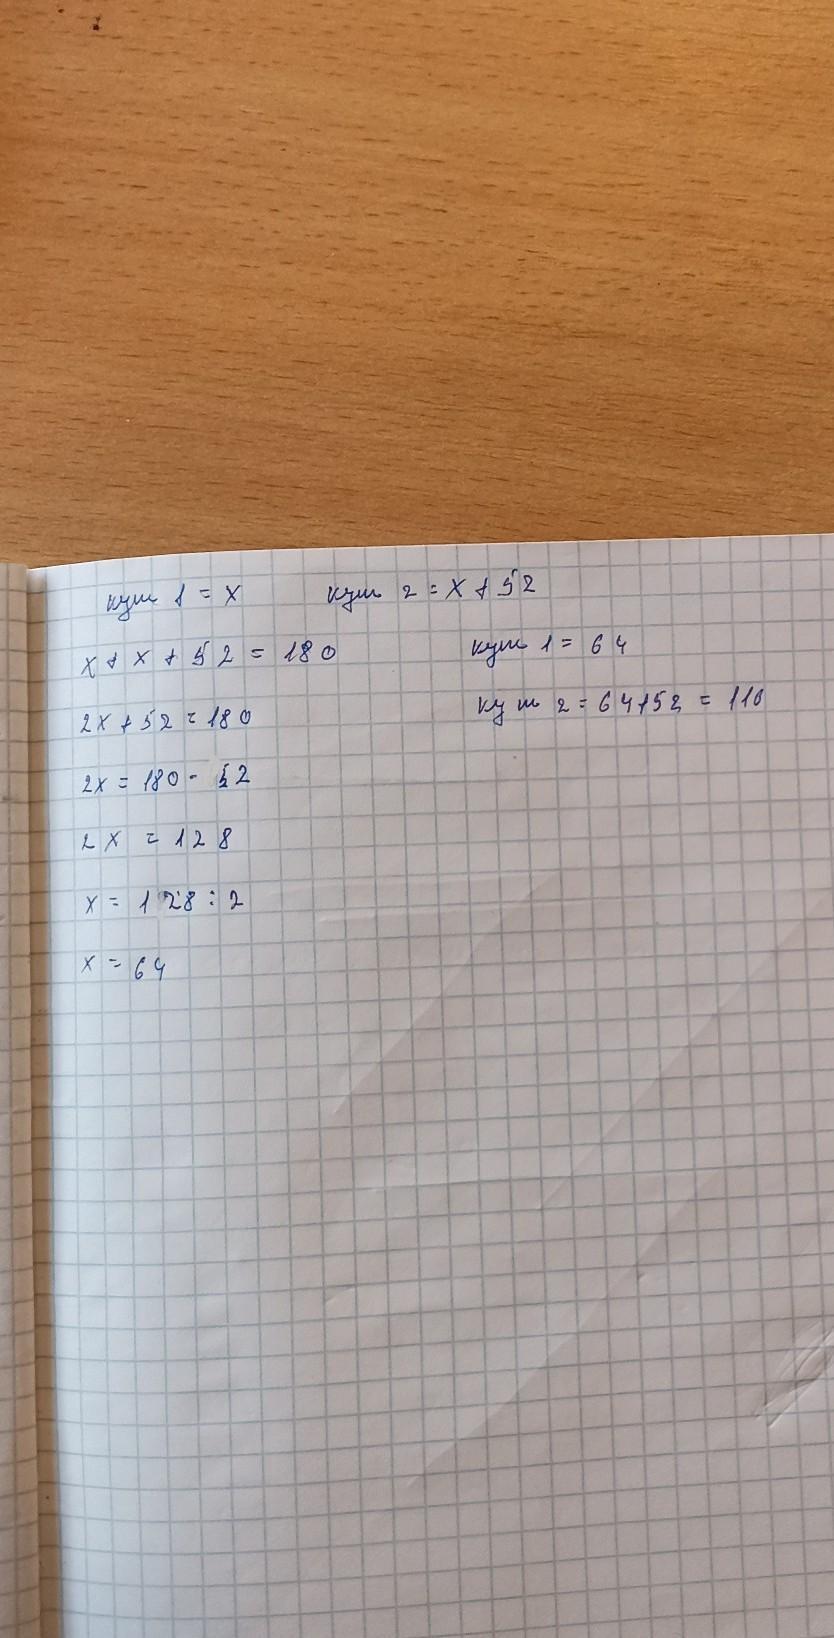 кут 1 = x кут 2 = x + 52
x + x + 52 = 180
2x + 52 = 180
2x = 180 - 52
2x = 128
x = 128 : 2
x = 64
кут 1 = 64
кут 2 = 64+52 = 116